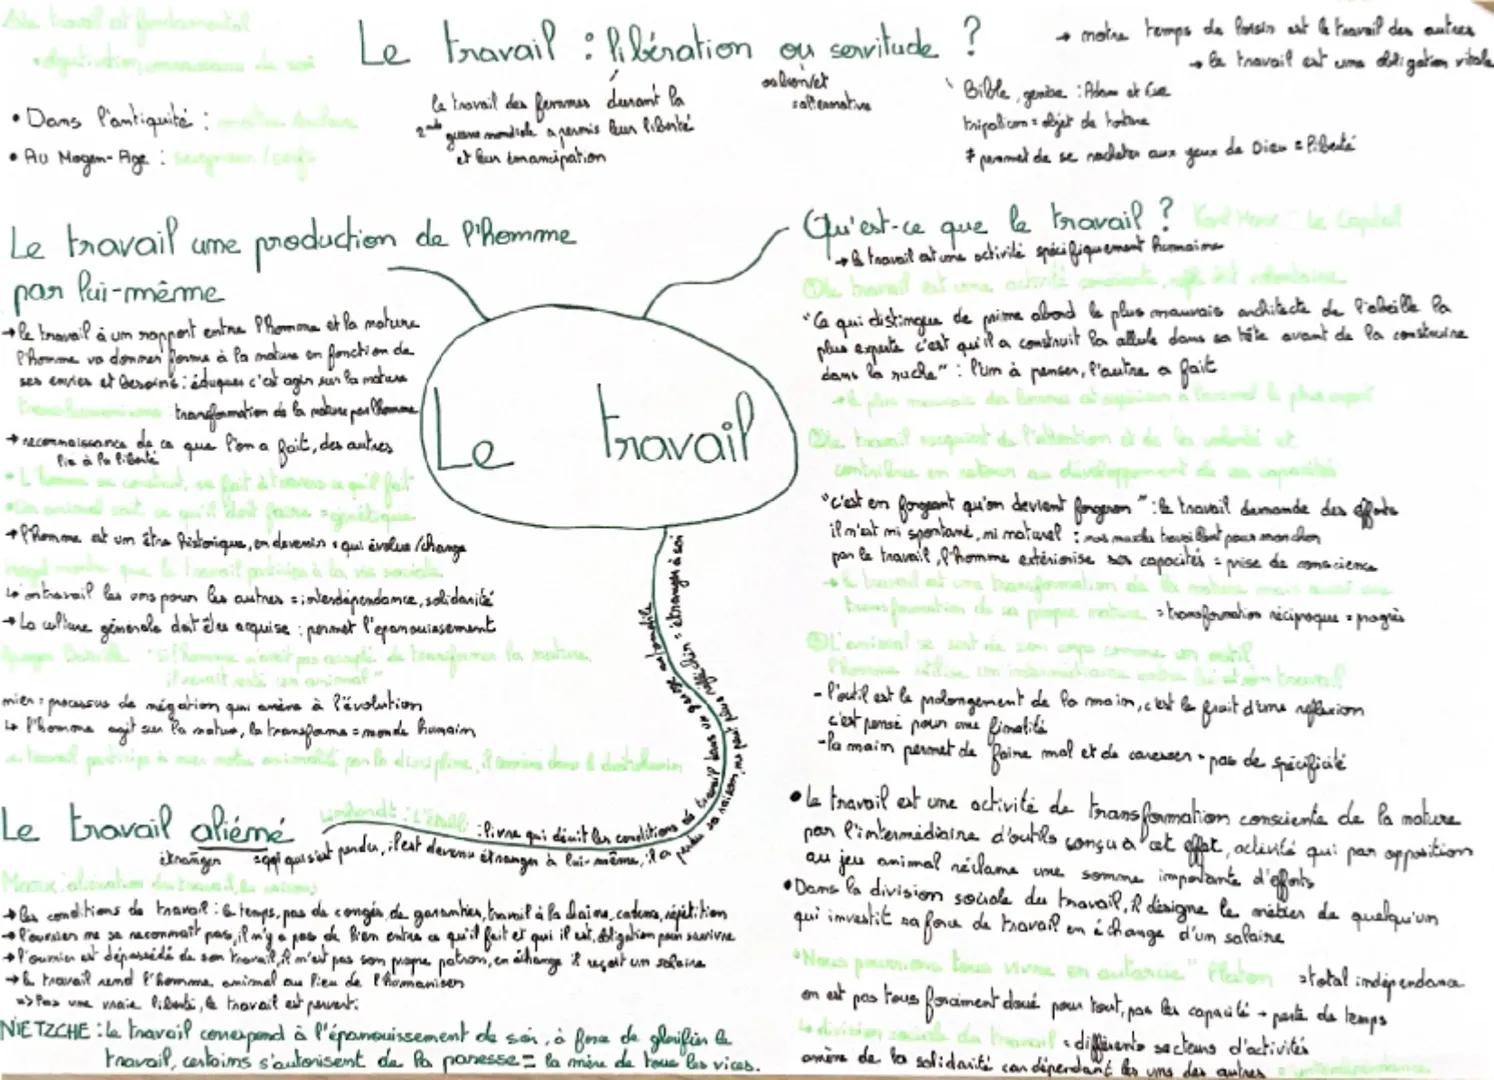 Le travail : libération ou servitude ?
ou bien/et
= alternative
le travail des femmes durant la
2nde guerre mondiale a permis leur liberté
et leur émancipation
→ notre temps de loisir est le travail des autres
→ le travail est une obligation vitale
Bible, genèse : Adam et Eve
tripalium = objet de torture
≠ permet de se racheter aux yeux de Dieu = liberté
Le travail est fondamental
• Dans l'antiquité :
• Au Moyen-Age : seigneur / serfs
Le travail une production de l'homme
par lui-même
→ le travail à un rapport entre l'homme et la nature
l'homme va donner forme à la nature en fonction de
ses envies et besoins : éduquer c'est agir sur la nature
transhumanisme transformation de la nature par l'homme
→ reconnaissance de ce que l'on a fait, des autres
lié à la liberté
• L'homme se construit, se fait à travers ce qu'il fait
un animal sait ce qu'il doit faire = génétique
→ l'homme est un être historique, en devenir = qui évolue / change
Hegel montre que le travail participe à la vie sociale
↳ on travail les uns pour les autres = interdépendance, solidarité
→ La culture générale doit être acquise : permet l'épanouissement
"Si l'homme n'avait pas accepté de transformer la nature,
il serait resté un animal"
nier = processus de négation qui amène à l'évolution
↳ l'homme agit sur la nature, la transforme = monde humain
le travail participe à nier notre animalité par la discipline, il
Le travail
Qu'est-ce que le travail ? Karl Marx Le Capital
→ le travail est une activité spécifiquement humaine
① le travail est une activité consciente, volontaire
"Ce qui distingue de prime abord le plus mauvais architecte de l'abeille la
plus experte c'est qu'il a construit la cellule dans sa tête avant de la construire
dans la ruche" : l'un à penser, l'autre a fait
② le travail requiert de l'attention et de la volonté et
contribue en retour au développement de ses capacités
"c'est en forgeant qu'on devient forgeron" : le travail demande des efforts
il n'est ni spontané, ni naturel : nos muscles travaillent pour marcher
par le travail, l'homme extériorise ses capacités = prise de conscience
→ le travail est une transformation de la nature mais aussi une
transformation de sa propre nature = transformation réciproque = progrès
③ L'animal se sert de son corps comme un outil
l'homme utilise un intermédiaire entre lui et son travail
- l'outil est le prolongement de la main, c'est le fruit d'une réflexion
c'est pensé pour une finalité
- la main permet de faire mal et de caresser = pas de spécificité
• le travail est une activité de transformation consciente de la nature
par l'intermédiaire d'outils conçu à cet effet, activité qui par opposition
au jeu animal réclame une somme importante d'efforts
• Dans la division sociale du travail, il désigne le métier de quelqu'un
qui investit sa force de travail en échange d'un salaire
"Nous pourrions tous vivre en autarcie" Platon = total indépendance
on est pas tous forcément doué pour tout, pas les capacité → perte de temps
↳ division sociale du travail = différents secteurs d'activités
amène de la solidarité car dépendant les uns des autres = interdépendance
Le travail aliéné
étranger
: livre qui décrit les conditions de travail dans un garage automobile
= qqn qui s'est perdu, il est devenu étranger à lui-même, il a perdu sa raison, ne peut plus réfléchir = étranger à soi
→ les conditions de travail : le temps, pas de congés, de garanties, travail à la chaine, cadence, répétition
→ l'ouvrier ne se reconnait pas, il n'y a pas de lien entre ce qu'il fait et qui il est, obligation pour survivre
→ l'ouvrier est dépossédé de son travail, il n'est pas son propre patron, en échange il reçoit un salaire
→ le travail rend l'homme animal au lieu de l'humaniser
=> Pas une vraie liberté, le travail est perverti
NIETZCHE : le travail correspond à l'épanouissement de soi, à force de glorifier le
travail, certains s'autorisent de la paresse = la mère de tous les vices.